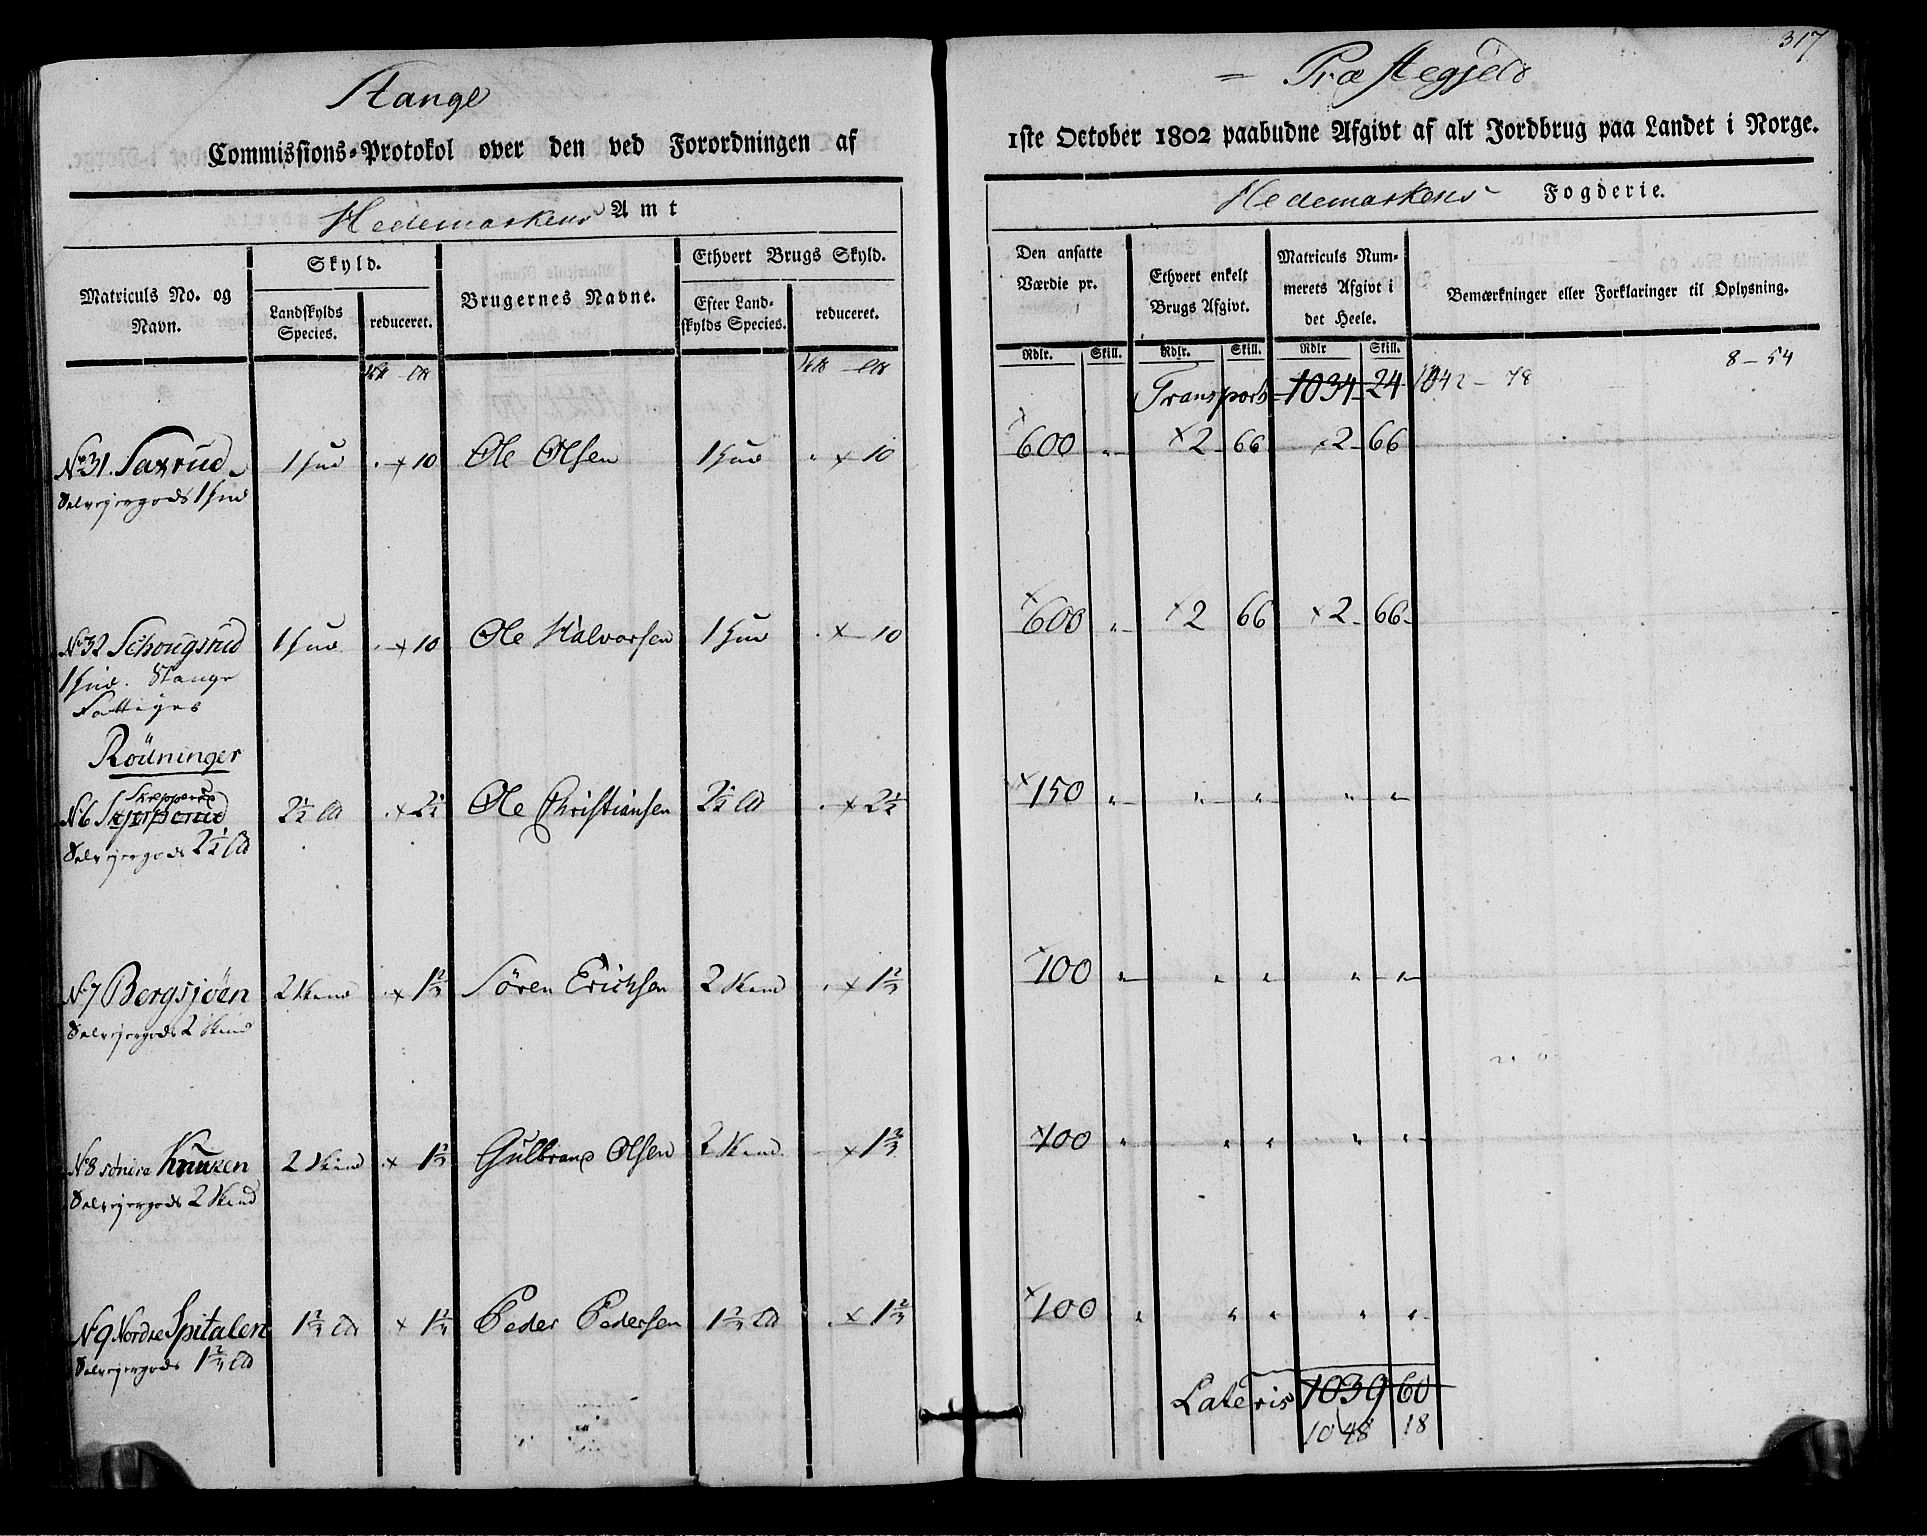 317
Stange
= Præstegjeld
Commissions-Protokol over den ved Forordningen af
1ste October 1802 paabudne Afgivt af alt Jordbrug paa Landet i Norge.
Hedemarkens Amt
Hedemarkens Fogderie.
Matriculs No. og Navn.
Skyld.
Landskylds Species.
reduceret.
Brugernes Navne.
Ethvert Brugs Skyld.
Efter Landskylds Species.
reduceret.
Den ansatte Værdie pr.
Ethvert enkelt Brugs Afgivt.
Matriculs Nummerets Afgivt i det Heele.
Bemærkninger eller Forklaringer til Oplysning.
Rdlr. Skill. Rdlr. Skill. Rdlr Skill.
Transport 1034 24 1042 - 78 8 - 54
No 31. Saxrud 1 Hud × 10 Ole Olsen 1 Hud × 10 600 " ×2 66 ×2 66
Selveiergods 1 Hud
No 32 Schougsrud 1 Hud × 10 Ole Halvorsen 1 Hud × 10 ×600 " ×2 66 ×2 66
1 Hud. Stange
Fattiges
Rödninger
Skepperud
No 6 2½ × 2½ Ole Christiansen 2½ × 2½ ×150 " " " " "
Selveiergods 2½
No 7 Bergsjöen 2 Skind × 1⅔ Sören Erichsen 2 Skind × 1⅔ ×100 " " " " "
Selveiergods 2 Skind
No 8 söndre Knuken 2 Skind × 1⅔ Gulbrand Olsen 2 Skind × 1⅔ ×100 " " " " "
Selveiergods 2 Skind
No 9 Nordre Spitalen 1⅔ × 1⅔ Peder Pedersen 1⅔ × 1⅔ ×100 " " " " "
Selveiergods 1⅔
Lateris 1039 60
1048 18